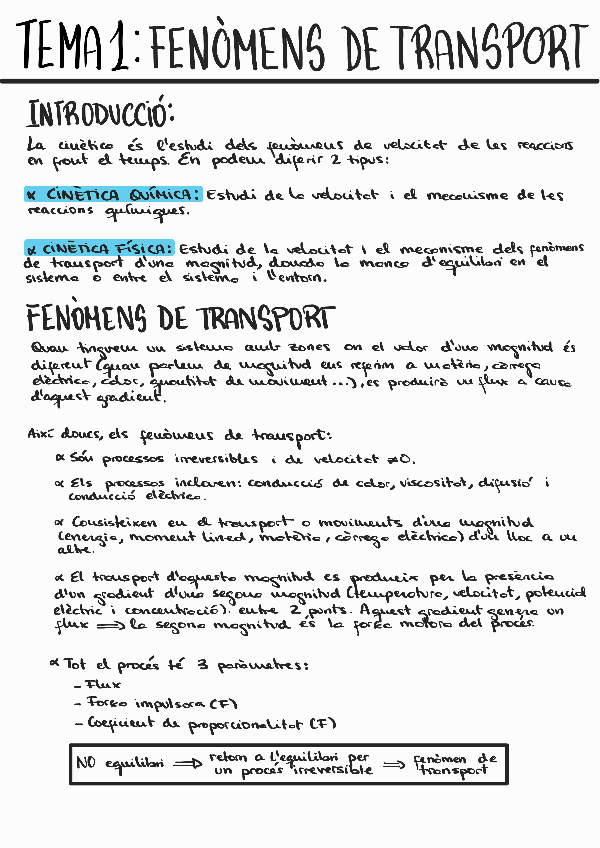 TEMA 1: FENÒMENS DE TRANSPORT
INTRODUCCIÓ:
La cinètica és l'estudi dels fenòmens de velocitat de les reaccions
en front el temps. En podem diferir 2 tipus:
∝ CINÈTICA QUÍMICA: Estudi de la velocitat i el mecanisme de les
reaccions químiques.
∝ CINÈTICA FÍSICA: Estudi de la velocitat i el mecanisme dels fenòmens
de transport d'una magnitud, donada la manca d'equilibri en el
sistema o entre el sistema i l'entorn.
FENÒMENS DE TRANSPORT
Quan tinguem un sistema amb zones on el valor d'una magnitud és
diferent (quan parlem de magnitud ens referim a matèria, càrrega
elèctrica, calor, quantitat de moviment ...), es produirà un flux a causa
d'aquest gradient.
Així doncs, els fenòmens de transport:
∝ Són processos irreversibles i de velocitat ≠0.
∝ Els processos inclouen: conducció de calor, viscositat, difusió i
conducció elèctrica.
∝ Consisteixen en el transport o moviments d'una magnitud
(energia, moment lineal, matèria, càrrega elèctrica) d'un lloc a un
altre.
∝ El transport d'aquesta magnitud es produeix per la presència
d'un gradient d'una segona magnitud (temperatura, velocitat, potencial
elèctric i concentració). entre 2 punts. Aquest gradient genera un
flux ⟹ la segona magnitud és la força motora del procés.
∝ Tot el procés té 3 paràmetres:
- Flux
- Força impulsora (F)
- Coeficient de proporcionalitat (F)
NO equilibri ⟹ retorn a l'equilibri per ⟹ fenòmen de
un procés irreversible transport